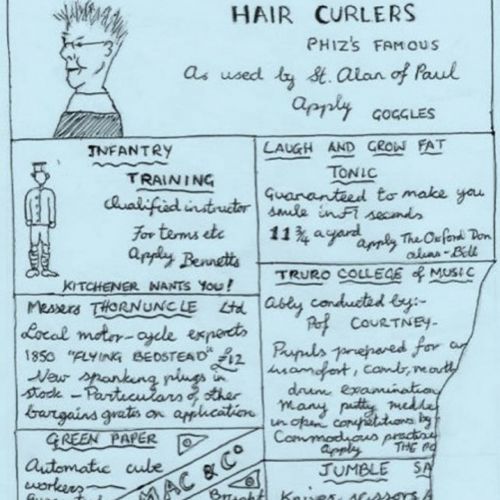 HAIR CURLERS
PHIZ'S FAMOUS
As used by St. Alan of Paul
Apply GOGGLES
INFANTRY
TRAINING
Qualified instructor
For terms etc
Apply Bennetts
KITCHENER WANTS YOU!
LAUGH AND GROW FAT
TONIC
Guaranteed to make you
smile in seconds
11¾ a yard apply The Oxford Don
alias - Bill
Messers THORNUNCLE Ltd
Local motor-cycle experts
1850 "FLYING BEDSTEAD" £12
- New spanking plugs in
stock - Particulars of other
bargains gratis on application
TRURO COLLEGE of MUSIC
Ably conducted by:-
Pof COURTNEY-
Pupils prepared for
comb, mouth
drum examination
Many putty
in open competitions by
Commodious practise
Apply THE
GREEN PAPER
Automatic cube
workers
MAC & Co
Bright
JUMBLE SA
Knives scissors